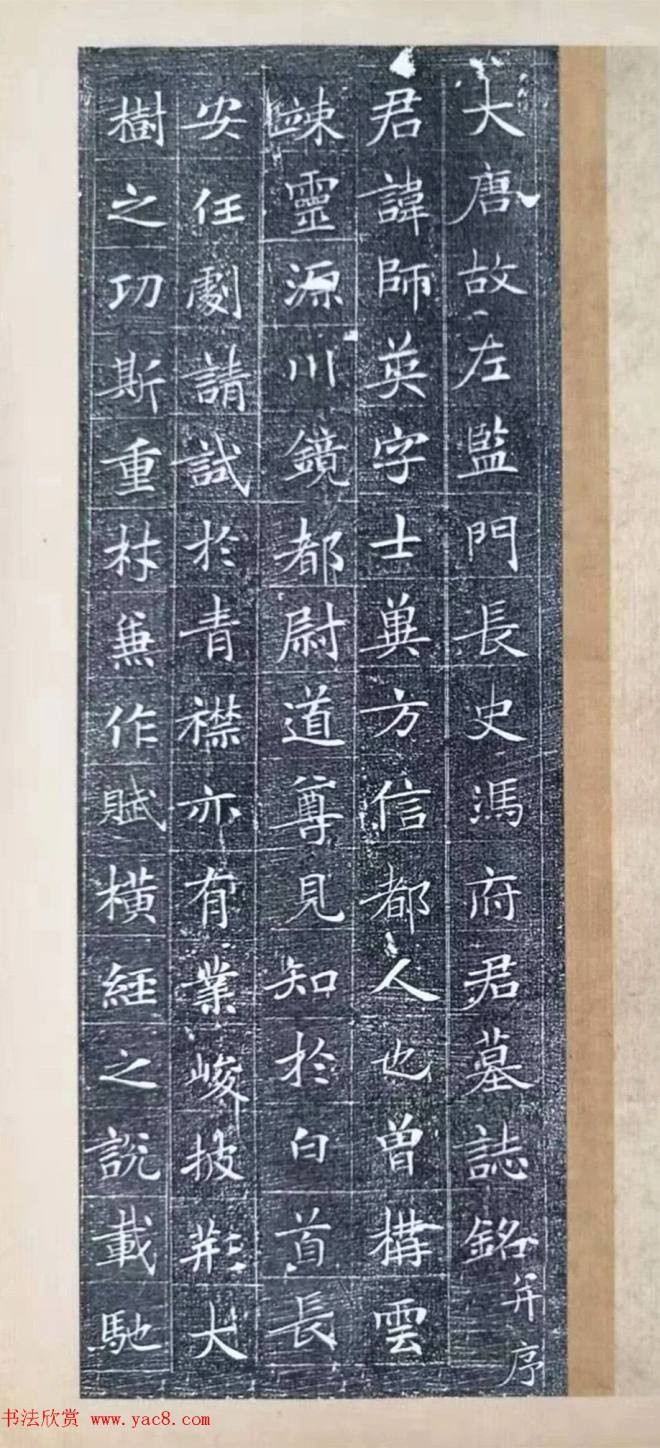 大唐故左監門長史馮府君墓誌銘并序
君諱師英字士異方信都人也曾構雲
竦靈源川鏡都尉道尊見知於白首長
安任劇請試於青襟亦有業峻披荊大
樹之功斯重材兼作賦橫經之說載馳
书法欣赏 www.yac8.com